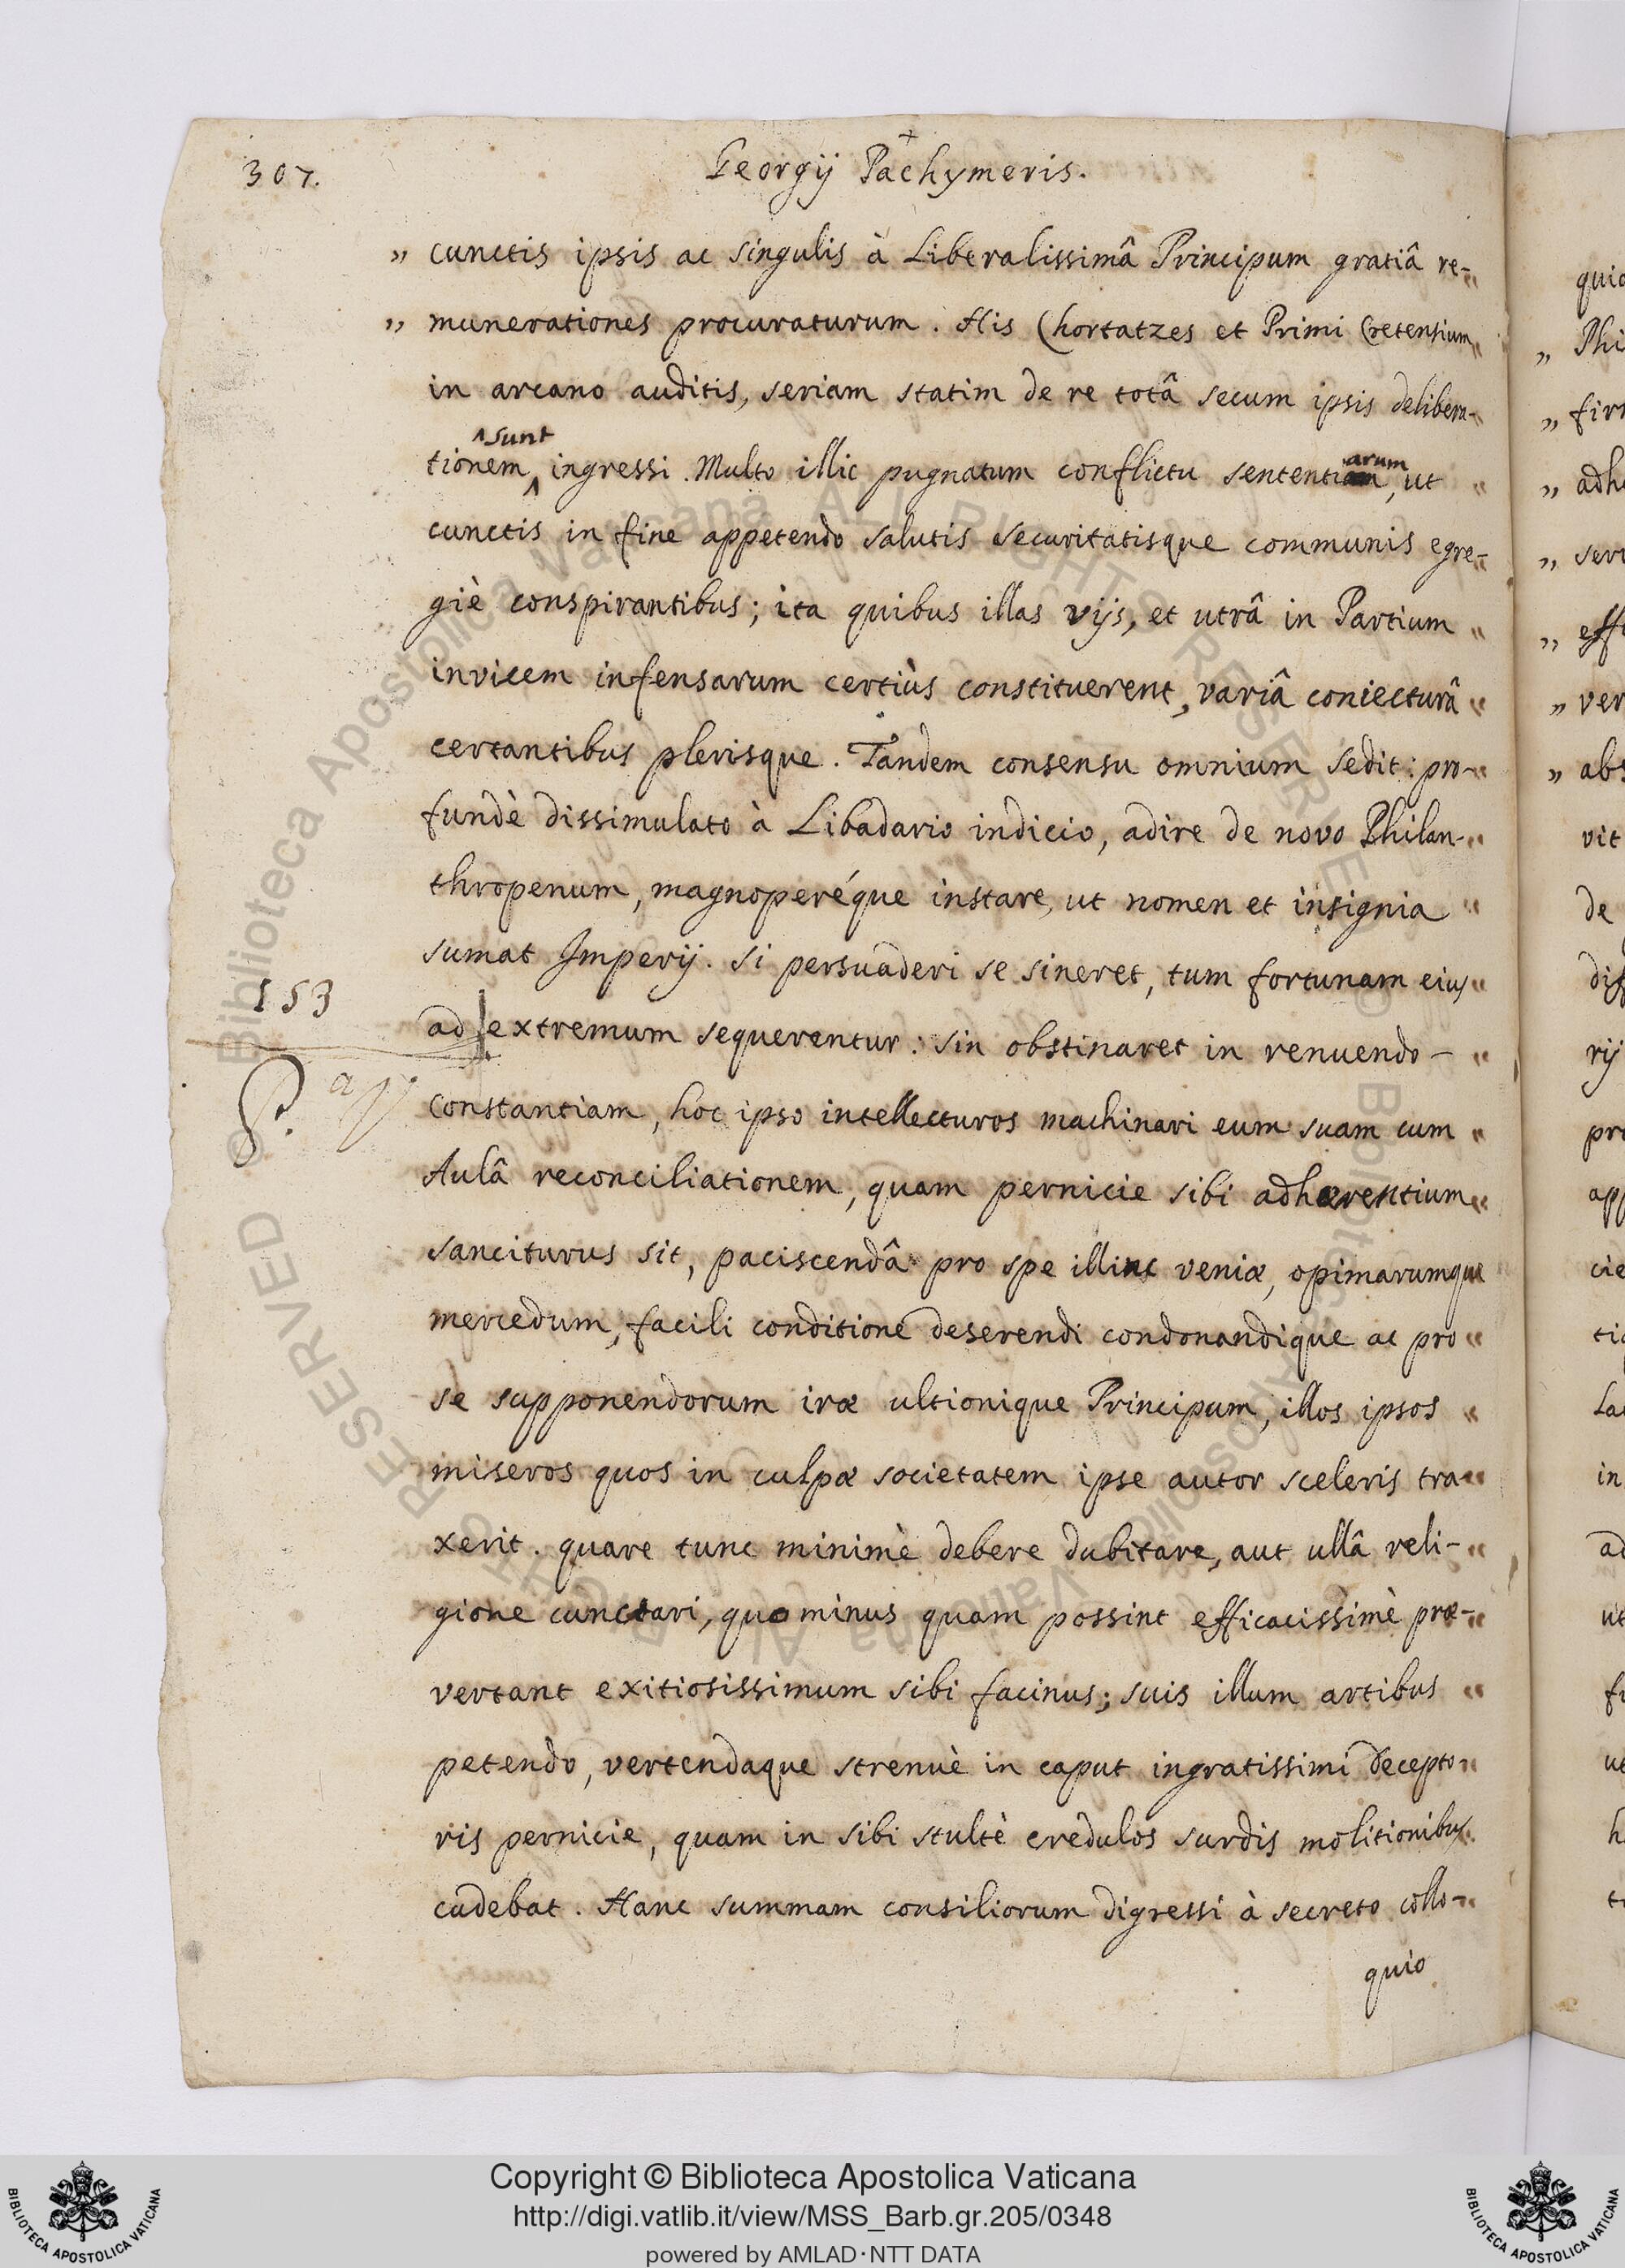 307.
Georgij Pachymeris.
„ cunctis ipsis ac singulis à Liberalissimâ Principum gratiâ re-„
„ munerationes procuraturum. His Chortatzes et Primi Cretensium„
in arcano auditis, seriam statim de re totâ secum ipsis delibera-„
sunt
tionem ‸ ingressi. Multo illic pugnatum conflictu sententiarum, ut „
cunctis in fine appetendo salutis securitatisque communis egre-„
giè conspirantibus; ita quibus illas vijs, et utrâ in Partium „
invicem infensarum certiùs constituerent, variâ coniecturâ „
certantibus plerisque. Tandem consensu omnium sedit: pro-„
fundè dissimulato à Libadario indicio, adire de novo Philan-„
thropenum, magnoperéque instare, ut nomen et insignia „
sumat Imperij. Si persuaderi se sineret, tum fortunam eius „
153
ad extremum sequerentur: sin obstinaret in renuendo - „
P. a
constantiam, hoc ipso intellecturos machinari eum suam cum „
Aulâ reconciliationem, quam pernicie sibi adhærentium „
sanciturus sit, paciscendâ pro spe illinc veniæ, opimarumque
mercedum, facili conditione deserendi condonandique ac pro „
se supponendorum iræ ultionique Principum, illos ipsos „
miseros quos in culpæ societatem ipse autor sceleris tra-„
xerit. quare tunc minimè debere dubitare, aut ullâ reli-„
gione cunctari, quominus quam possint efficacissimè præ-„
vertant exitiosissimum sibi facinus; suis illum artibus „
petendo, vertendaque strenuè in caput ingratissimi decepto-„
ris pernicie, quam in sibi stultè credulos surdis molitionibus „
cudebat. Hanc summam consiliorum digressi à secreto collo-„
quio
Copyright © Biblioteca Apostolica Vaticana
http://digi.vatlib.it/view/MSS_Barb.gr.205/0348
powered by AMLAD·NTT DATA
BIBLIOTECA APOSTOLICA VATICANA
BIBLIOTECA APOSTOLICA VATICANA